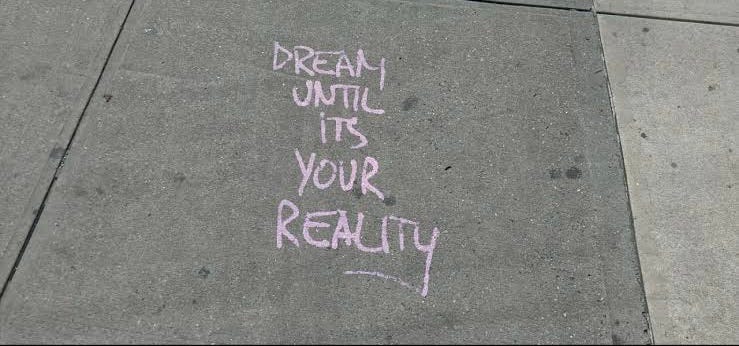 DREAM
UNTIL
iTS
YOUR
REALITY